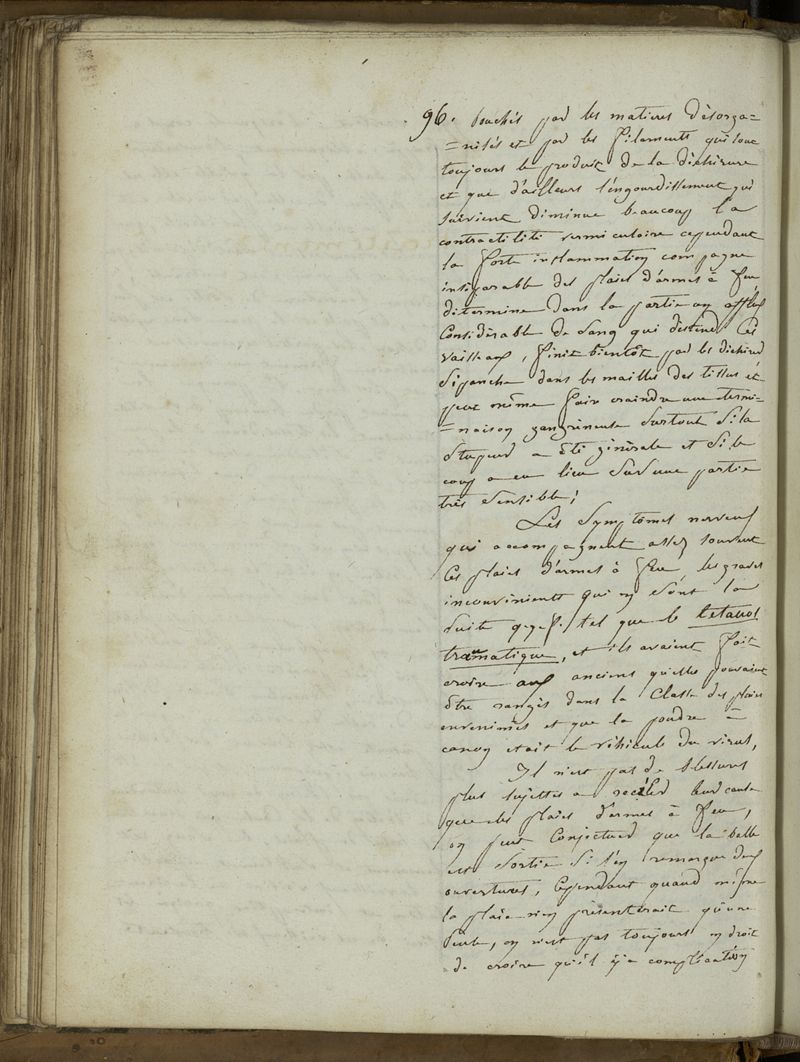 96. bouchés par les matieres désorga=
=nisés et par les filaments qui sont
toujours le produit de la déchirure
et que d'ailleurs l'engourdissement qui
survient diminue beaucoup la
contractilité vermiculaire cependant
la forte inflammation compagne
inséparable des plaies d'armes à feu
détermine dans la partie un afflux
Considérable de Sang qui distend Ces
vaisseaux, finit bientôt par les déchirer
S'épanche dans les mailles des tissus et
peut même faire craindre une termi=
=naison gangreneuse Surtout Si la
Stupeur a été générale et Si le
coup a eu lieu Sur une partie
très Sensible;
Les Symptomes nerveux
qui accompagnent assez souvent
Ces plaies d'armes à feu les graves
inconvénients qui en Sont la
Suite tel que le tetanos
traumatique, et ils avaient fait
croire aux anciens qu'elles pouvaient
être rangés dans la Classe des plaies
envenimés et que la poudre à
canon etait le véhicule du virus,
Il n'est pas de blessures
plus sujettes a recéler leur cause
que les plaies d'armes à feu,
on peut Conjecturer que la balle
est Sortie Si l'on remarque deux
ouvertures, Cependant quand même
la plaie n'en présenterait qu'une
Seule, on n'est pas toujours en droit
de croire qu'il y a complication